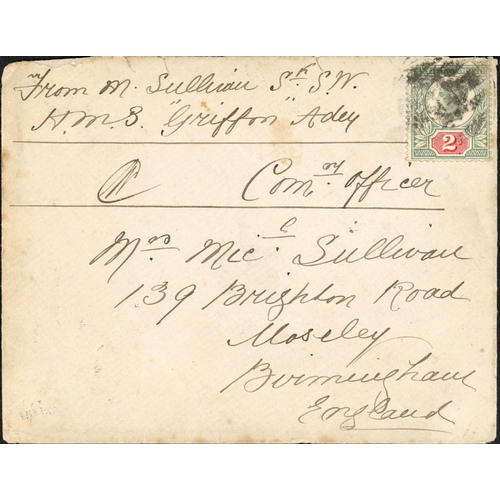 From M. Sullivan Sr. S.W.
H.M.S. "Griffon" Adey
Comry officer
Mrs Micl Sullivan
139 Brighton Road
Moseley
Birmingham
England
2D